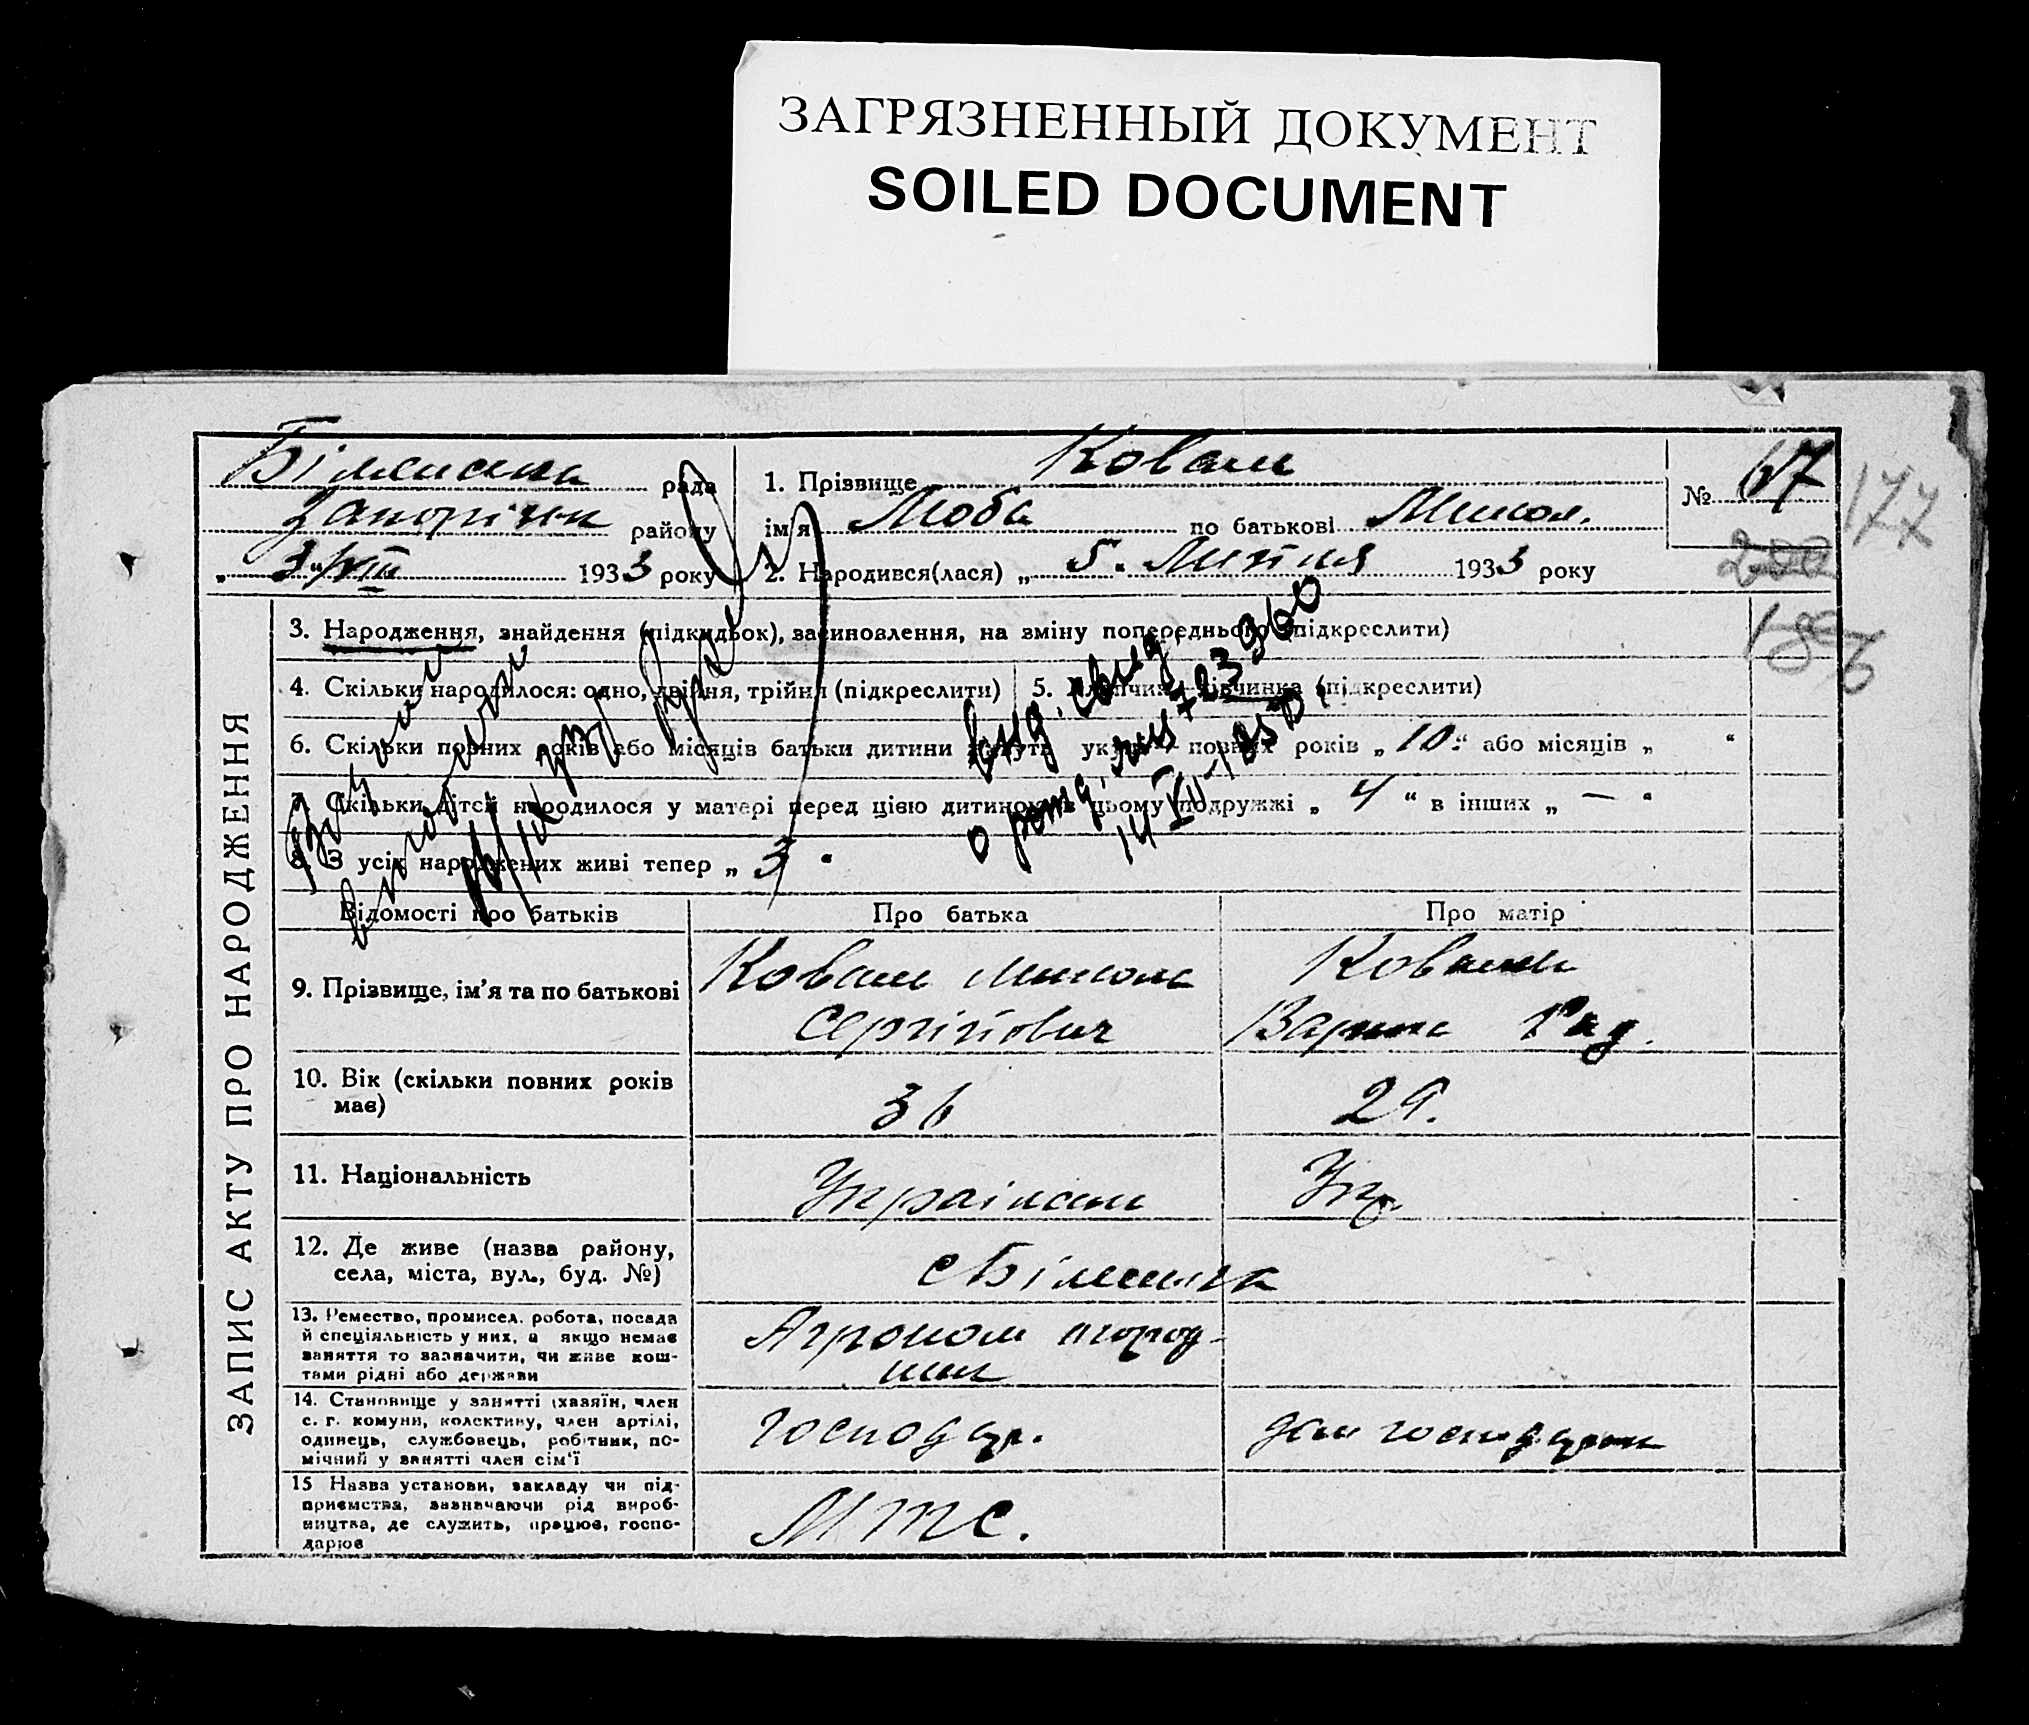 ЗАГРЯЗНЕННЫЙ ДОКУМЕНТ
SOILED DOCUMENT
рада
Запорізьк району
„ 3 “ VIII 1933 року
1. Прізвище Коваль
ім'я Люба по батькові Микол.
2. Народився(лася) „ 5. Липня 1933 року
№ 67
177
200
186
ЗАПИС АКТУ ПРО НАРОДЖЕННЯ
3. Народження, знайдення (підкидьок), засиновлення, на вміну попереднього (підкреслити)
4. Скільки народилося: одно, двійня, трійня (підкреслити)
5. Хлопчик, дівчинка (підкреслити)
6. Скільки повних років або місяців батьки дитини живуть укупі — повних років „ 10 “ або місяців „ “
7. Скільки дітей народилося у матері перед цією дитиною: в цьому подружжі „ 4 “ в інших „ — “
8. З усіх народжених живі тепер „ 3 “
выд. свид.
о рожд.
Відомості про батьків
Про батька
Про матір
9. Прізвище, ім'я та по батькові
Коваль Микола
Сергійович
Коваль
10. Вік (скільки повних років
має)
36
29.
11. Національність
Українець
Укр
12. Де живе (назва району,
села, міста, вул., буд. №)
13. Ремество, промисел. робота, посада
й спеціяльність у них, а якщо немає
заняття то зазначити, чи живе кош-
тами рідні або держави
Агроном город-
ник
14. Становище у занятті (хазяїн, член
с. г. комуни, колективу, член артілі,
одинець, службовець, робітник, по-
мічний у занятті член сім'ї
господар.
дом господарка
15 Назва установи, закладу чи під-
приємства, зазначаючи рід вироб-
ництва, де служить, працює, госпо-
дарює
МТС.